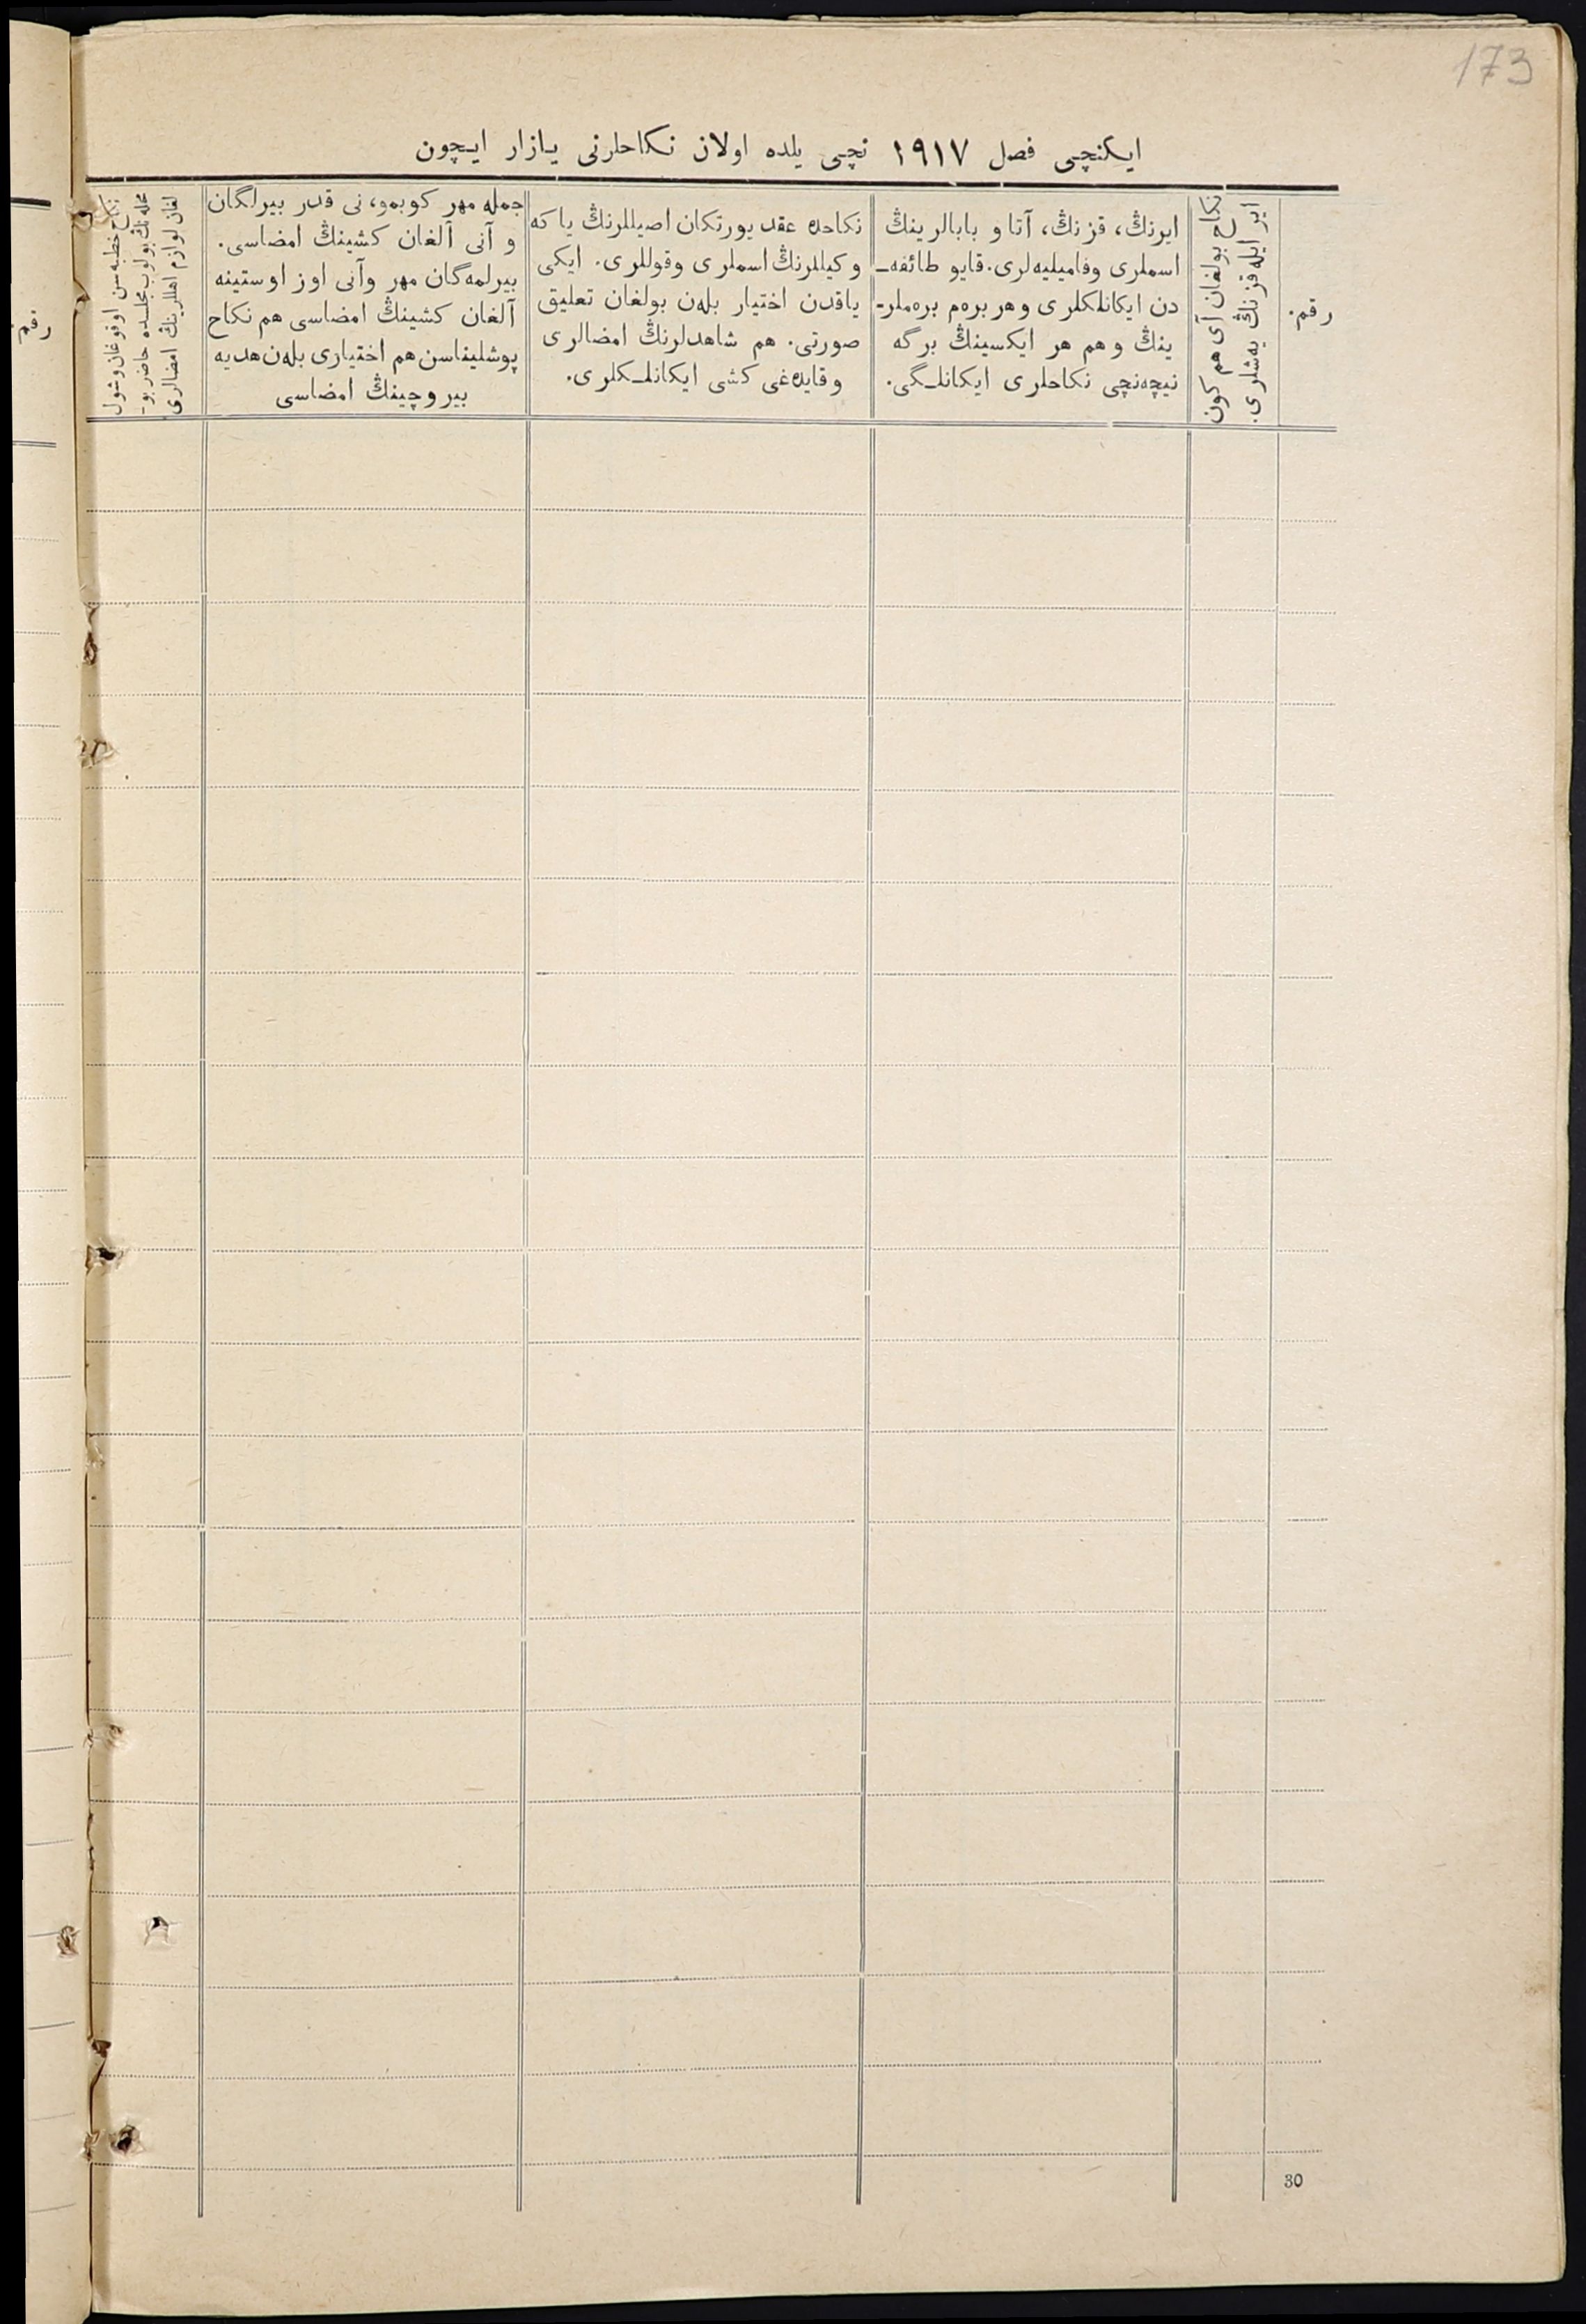 173
ایکنچی فصل ١٩١٧ نچی یلده اولان نکاحلرنی یازار ایچون
رقم.
ایر ایله قزنڭ یه‌شلری.
نکاح بولغان آی هم کون
ایرنڭ، قزنڭ، آتا و بابالرینڭ
اسملری وفامیلیه‌لری. قایو طائفه‌ـ
دن ایکانلکلری وهر بره‌م بره‌ملرـ
ینڭ وهم هر ایکسینڭ برگه
نیچه‌نچی نکاحلری ایکانلـگی.
نکاحده عقد یورتکان اصیللرنڭ یا که
وکیللرنڭ اسملری وقوللری. ایکی
یاقدن اختیار بله‌ن بولغان تعلیق
صورتی. هم شاهدلرنڭ امضالری
وقایده‌غی کشی ایکانلـکلری.
جمله مهر کوبمو، نی قدر بیرلگان
و آنی آلغان کشینڭ امضاسی.
بیرلمه‌گان مهر وآنی اوز اوستینه
آلغان کشینڭ امضاسی هم نکاح
پوشلیناسن هم اختیاری بله‌ن هدیه
بیروچینڭ امضاسی
نکاح خطبه‌سن اوقوغان وشول
محله‌نڭ بولوب مجلسده حاضر بوـ
لغان لوازم اهللرینڭ امضالری
رقم.
30